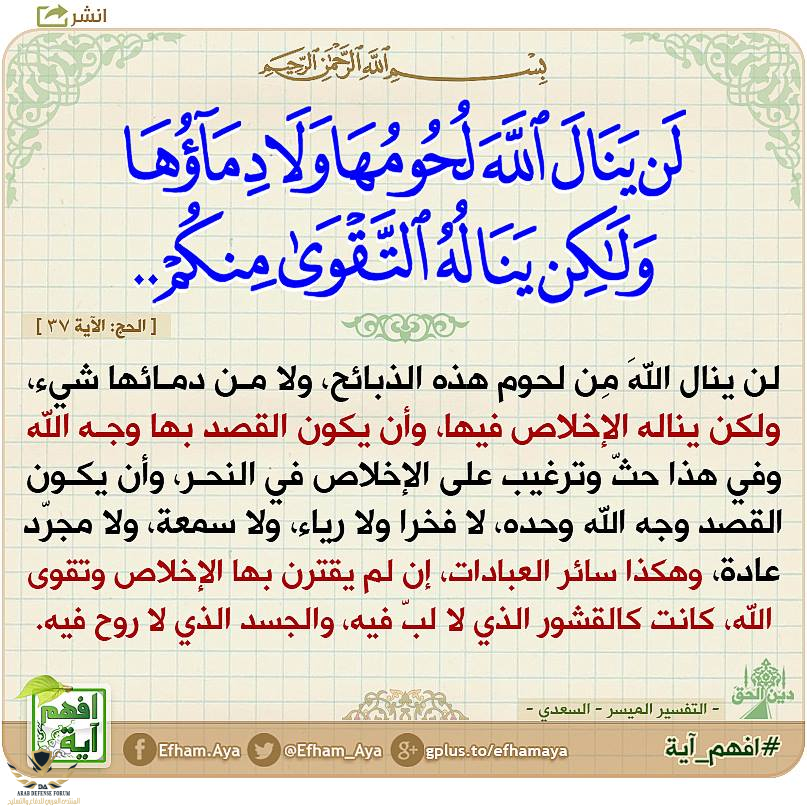 انشر
بِسْمِ اللَّهِ الرَّحْمَٰنِ الرَّحِيمِ
لَن يَنَالَ ٱللَّهَ لُحُومُهَا وَلَا دِمَآؤُهَا
وَلَٰكِن يَنَالُهُ ٱلتَّقْوَىٰ مِنكُمْ..
[ الحج: الآية ٣٧ ]
لن ينال اللهَ مِن لحوم هذه الذبائح، ولا مـن دمـائها شيء،
ولكن يناله الإخلاص فيها، وأن يكون القصد بها وجـه الله
وفي هذا حثّ وترغيب على الإخلاص في النحـر، وأن يكـون
القصد وجه الله وحده، لا فخرا ولا رياء، ولا سمعة، ولا مجرّد
عادة، وهكذا سائر العبادات، إن لم يقترن بها الإخلاص وتقوى
الله، كانت كالقشور الذي لا لبّ فيه، والجسد الذي لا روح فيه.
دين الحق
- التفسير الميسر - السعدي -
افهم
آية
Efham.Aya @Efham_Aya gplus.to/efhamaya #افهم_آية
ARAB DEFENSE FORUM
المنتدى العربي للدفاع والتسليح